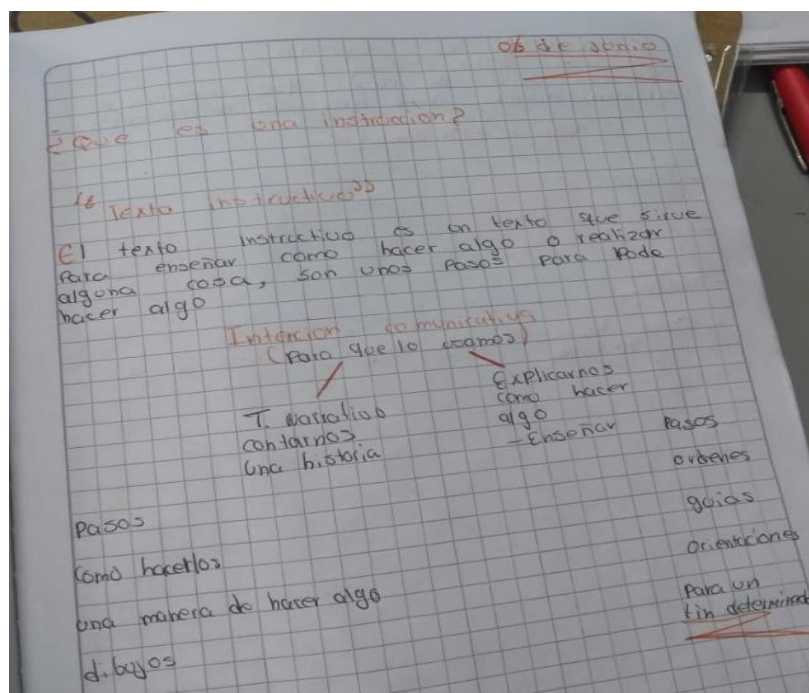 06 de Junio
¿Que es una instruccion?
"Texto instructivo"
El texto instructivo es un texto que sirve
Para enseñar como hacer algo o realizar
alguna cosa, son unos Pasos Para Pode
hacer algo
Intencion comunicativa
(Para que lo usamos)
T. Narrativo
contarnos
una historia
Explicarnos
como hacer
algo
- Enseñar
Pasos
ordenes
guias
orientaciones
Para un
fin determinad
Pasos
Como hacerlos
una manera de hacer algo
dibujos